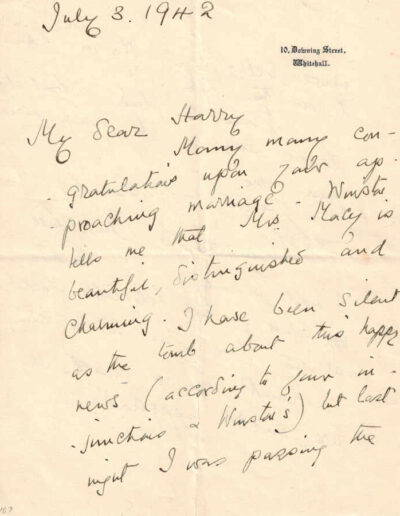 July 3. 1942
10, Downing Street,
Whitehall.
My dear Harry
Many many con-
-gratulations upon your ap-
-proaching marriage - Winston
tells me that Mrs. Macy is
beautiful, distinguished and
charming. I have been silent
as the tomb about this happy
news (according to your in-
-junctions & Winston's) but last
night I was passing the
107